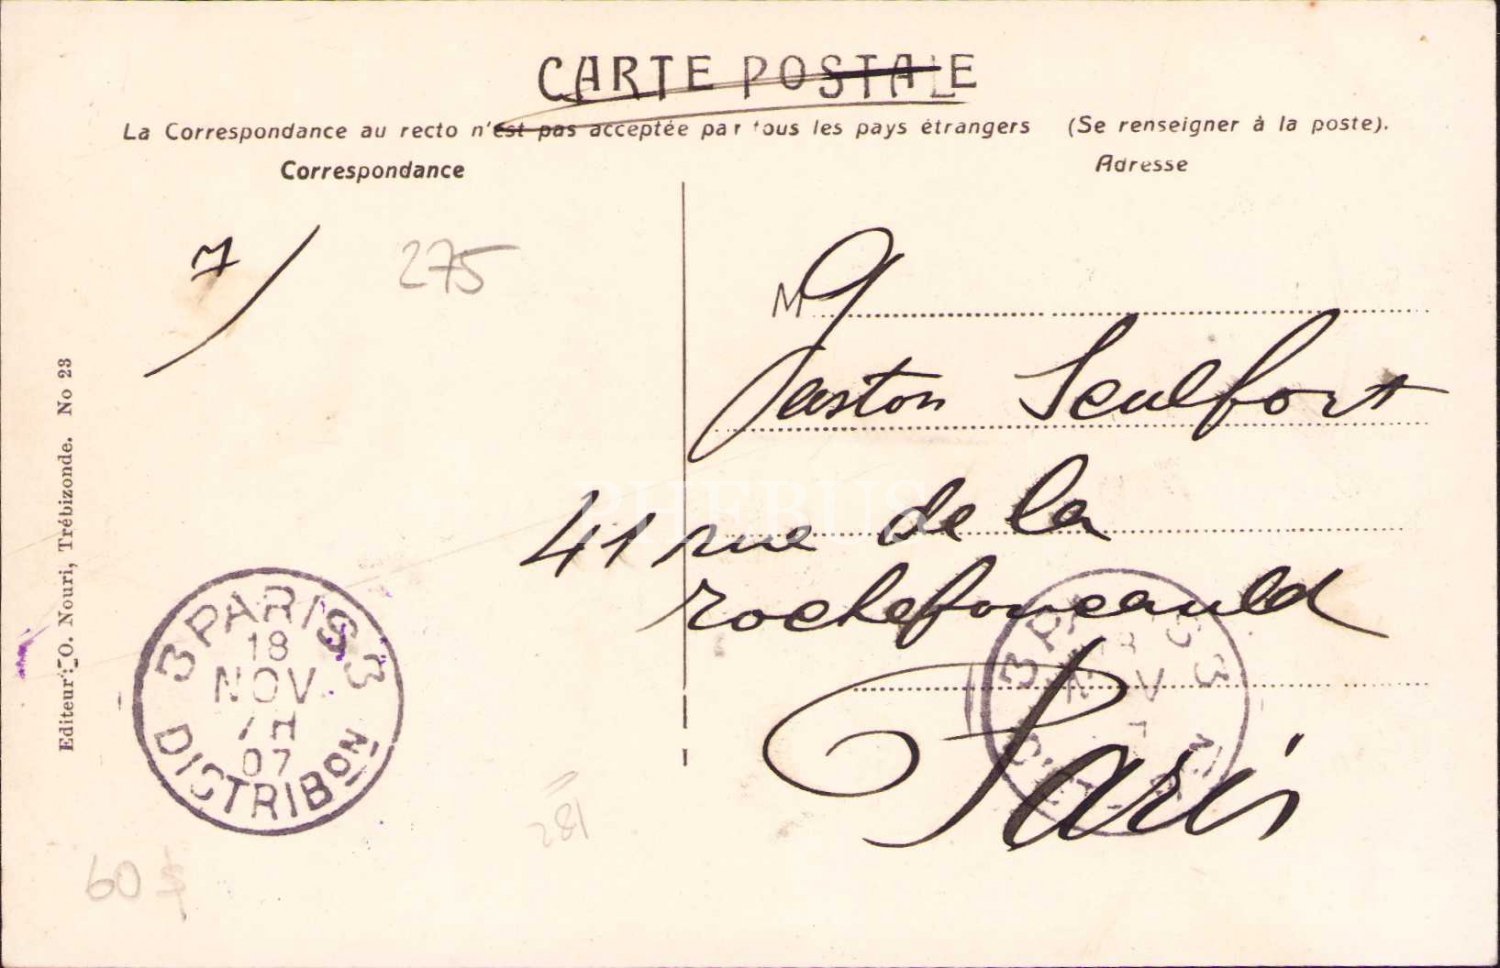 CARTE POSTALE
La Correspondance au recto n'est pas acceptée par tous les pays étrangers (Se renseigner à la poste).
Correspondance
Adresse
7/
275
M
Gaston Seulfort
41 rue de la
rochefoucauld
Paris
Editeur: O. Nouri, Trébizonde. No 23
3 PARIS 3
18
NOV
7H
07
DISTRIBON
281
60 $
PHEBUS